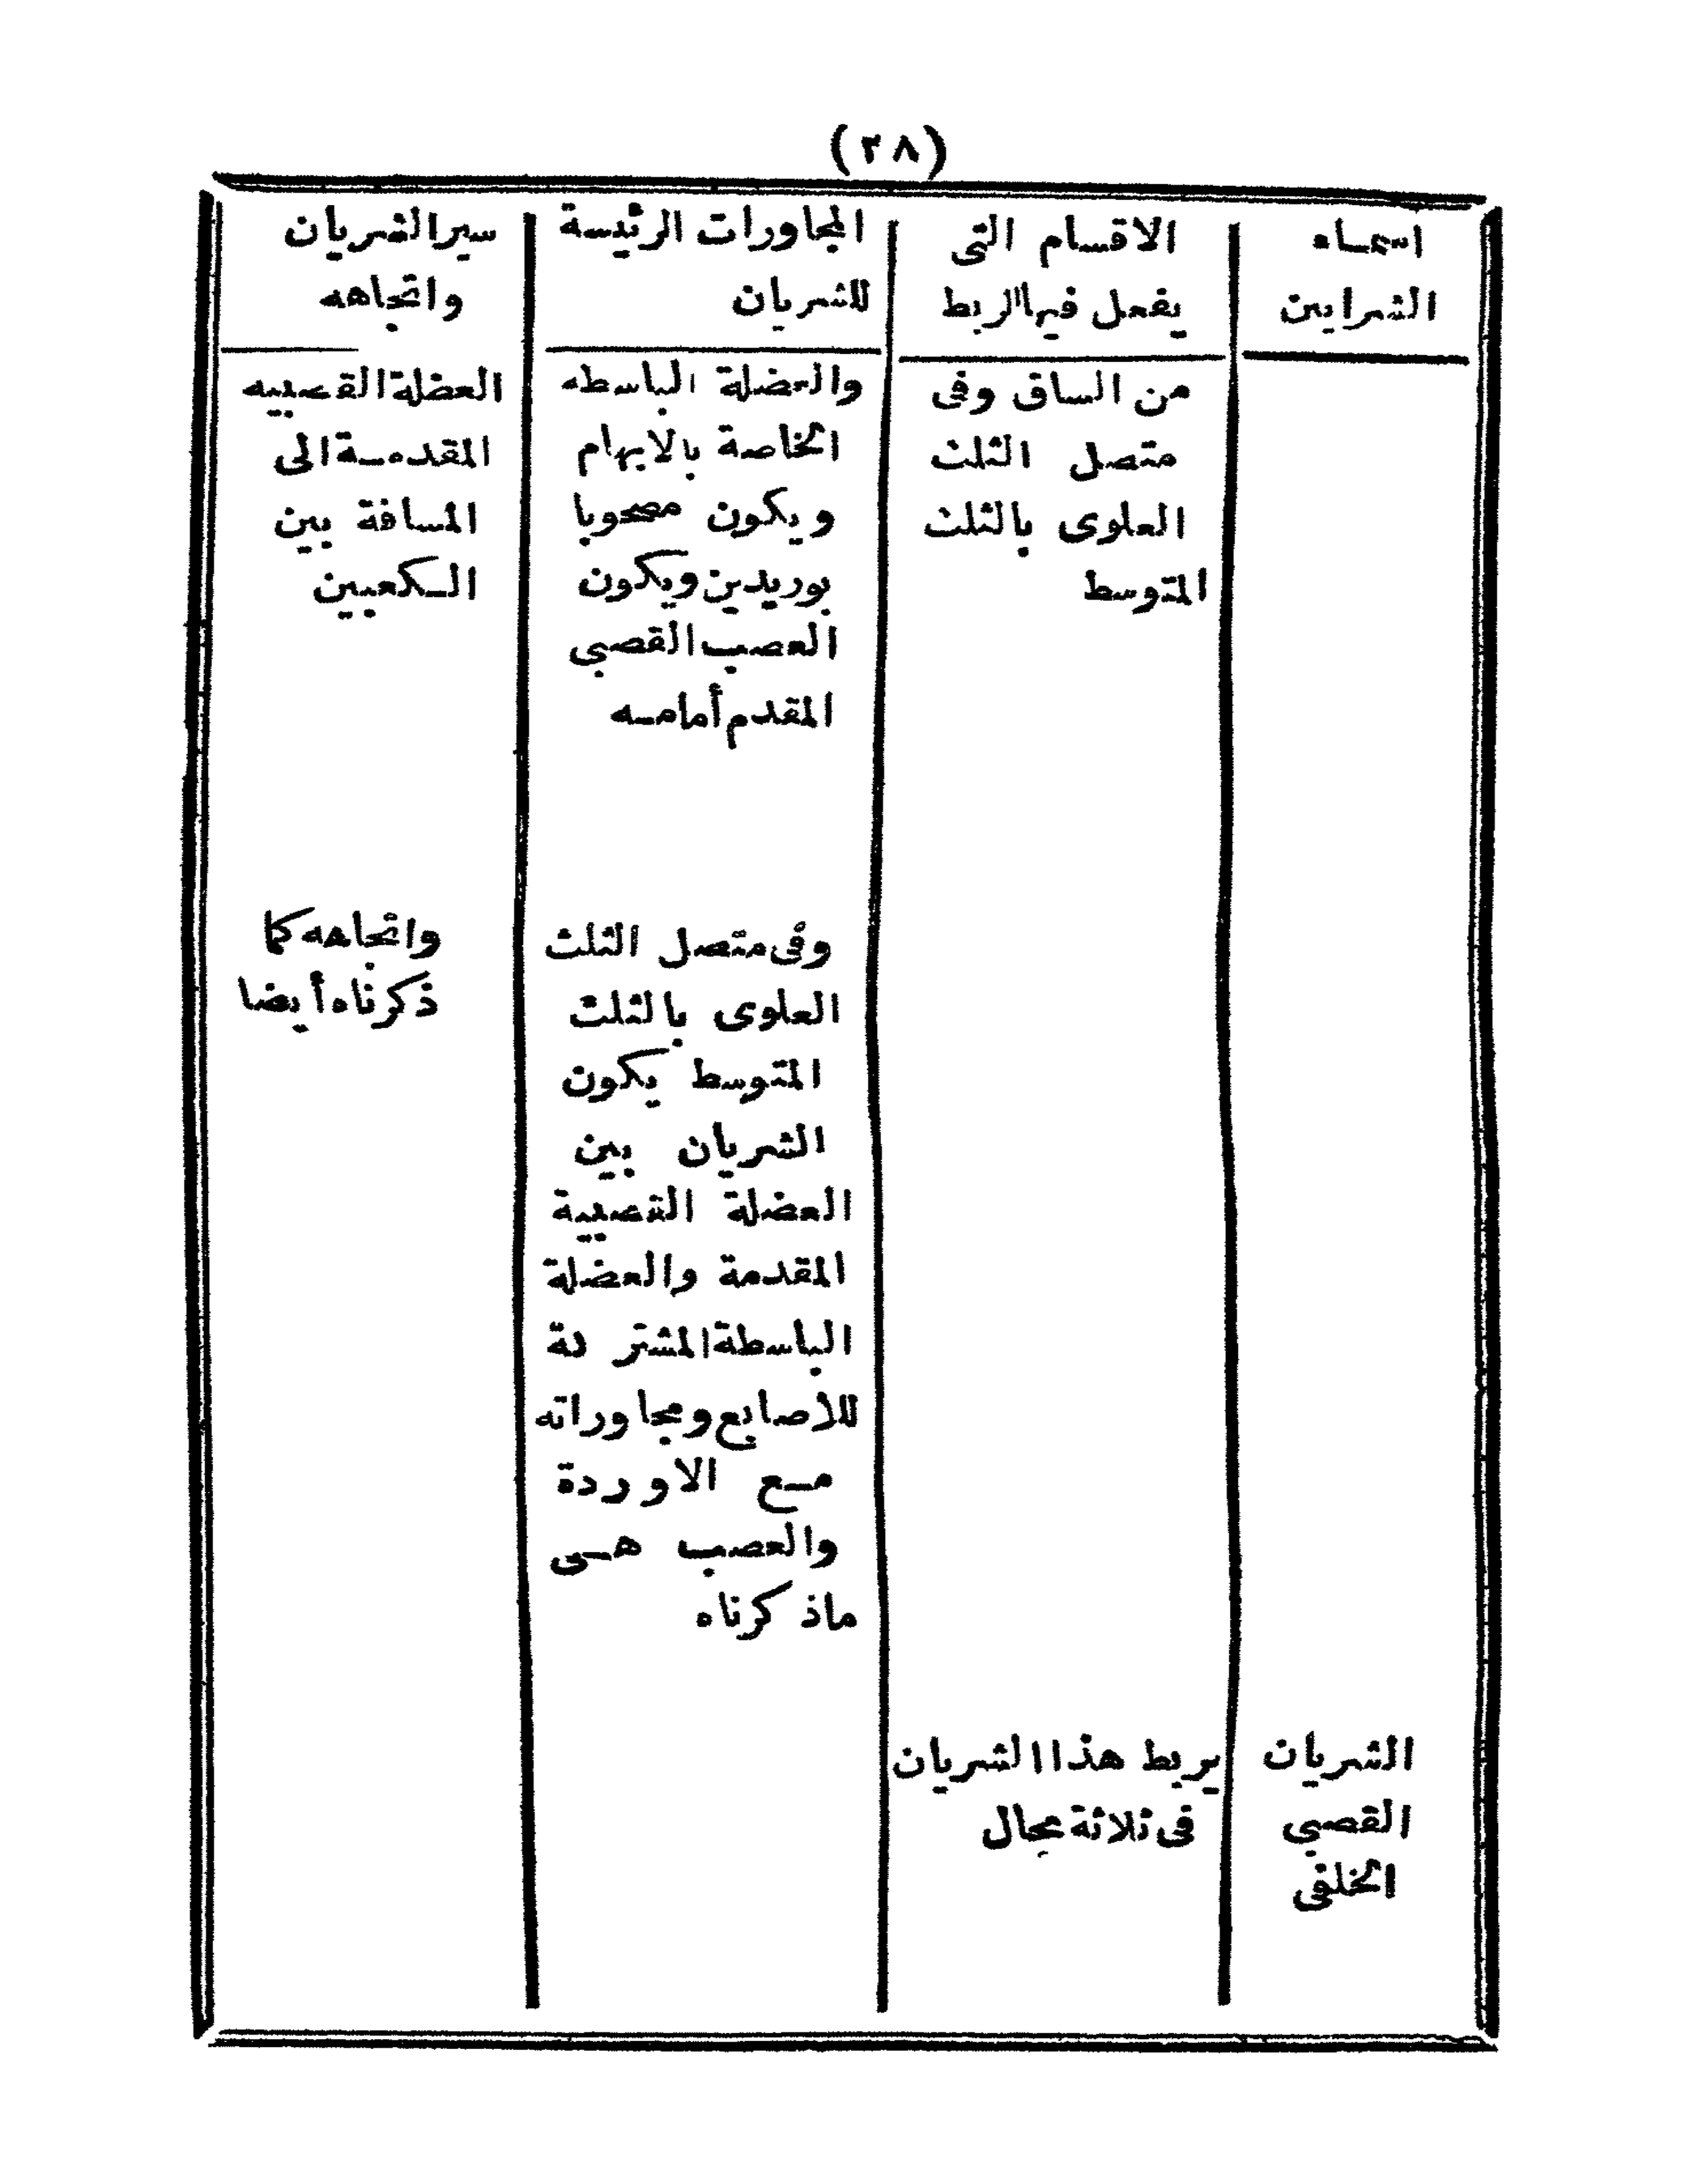 (٢٨)
اسماء
الشرايين
الاقسام التى
يفعل فيها الربط
المجاورات الرئيسة
للشريان
سير الشريان
واتجاهه
من الساق وفى
متصل الثلث
العلوى بالثلث
المتوسط
والعضلة الباسطه
الخاصة بالابهام
ويكون مصحوبا
بوريدين ويكون
العصب القصبى
المقدم أمامه
العضلة القصبيه
المقدمة الى
المسافة بين
الكعبين
وفى متصل الثلث
العلوى بالثلث
المتوسط يكون
الشريان بين
العضلة القصبية
المقدمة والعضلة
الباسطة المشتركة
للأصابع ومجاوراته
مع الاوردة
والعصب هى
ماذكرناه
واتجاهه كما
ذكرناه أيضا
الشريان
القصبي
الخلفى
يربط هذا الشريان
فى ثلاثة محال